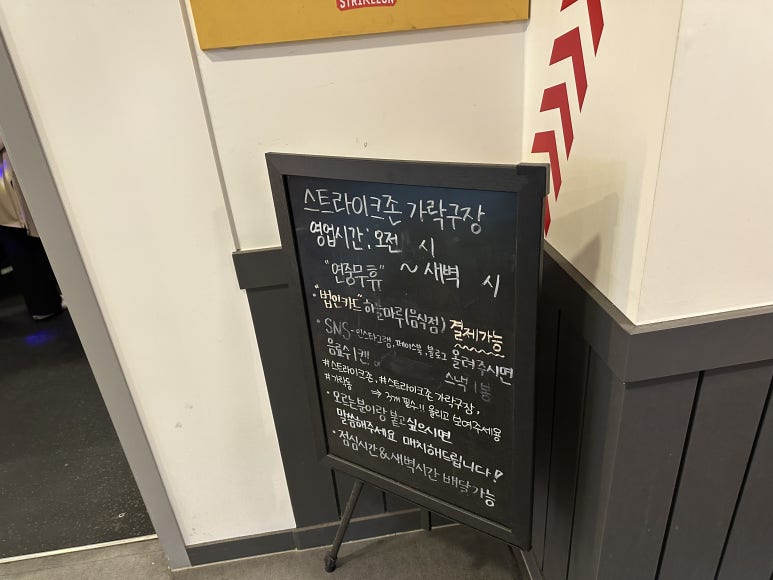 STRIKEZON
스트라이크존 가락구장
영업시간 : 오전 시
"연중무휴" ~ 새벽 시
· "법인카드" 하늘마루(음식점) 결제가능
· SNS - 인스타그램, 페이스북, 블로그 올려주시면
음료수 1캔! 스낵 1봉
#스트라이크존, #스트라이크존 가락구장,
#가락동 ⇒ 3개 필수!! 올리고 보여주세용
· 모르는분이랑 붙고싶으시면
말씀해주세요 매치해드립니다!
· 점심시간&새벽시간 배달가능